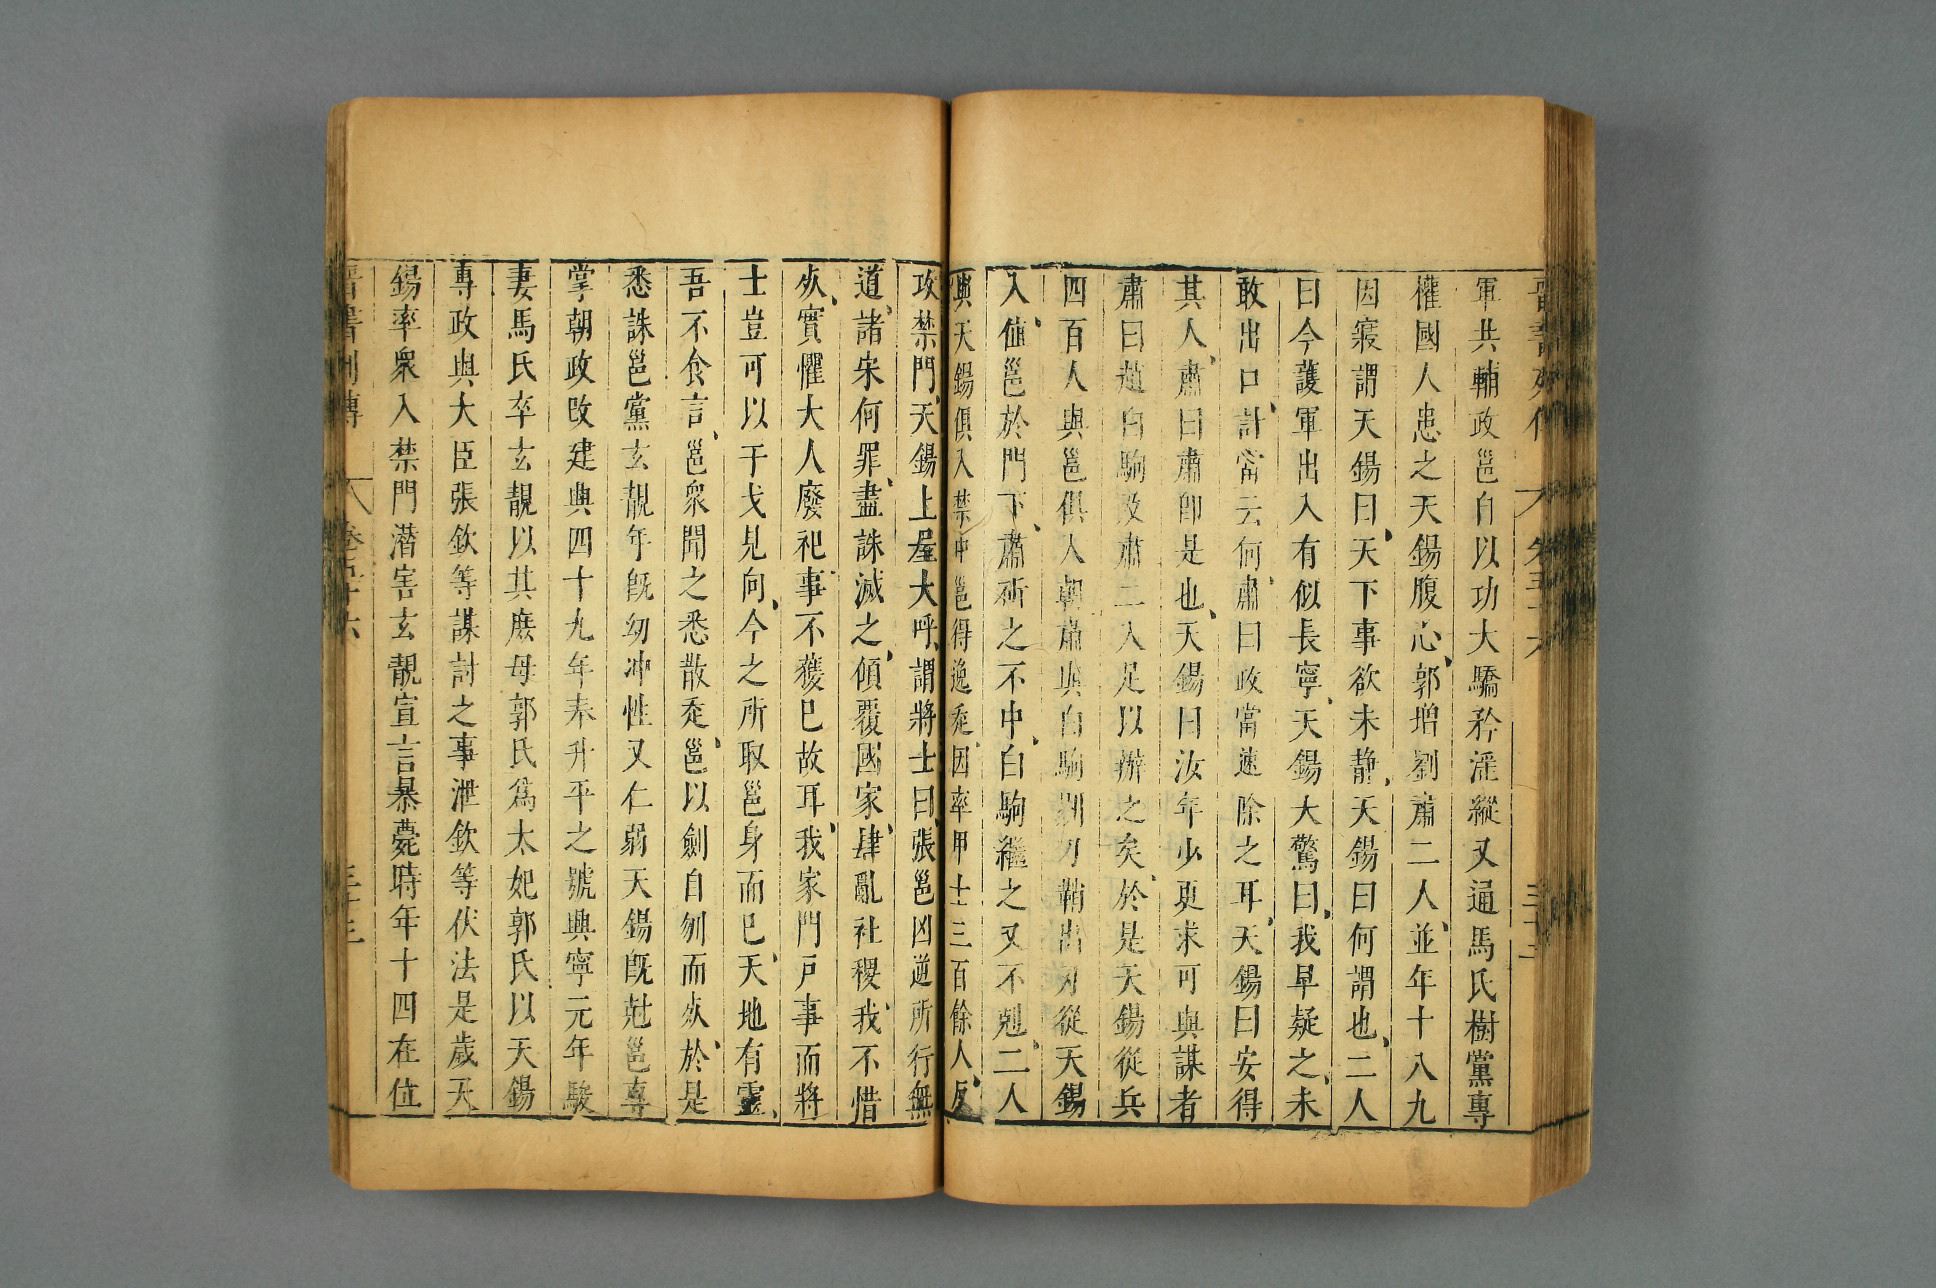 晉書列傳 卷五十六 三十二
軍共輔政邕自以功大驕矜滛縱又通馬氏樹黨專
權國人患之天錫腹心郭增劉肅二人並年十八九
因寢謂天錫曰天下事欲未静天錫曰何謂也二人
曰今護軍出入有似長寧天錫大驚曰我早疑之未
敢出口計當云何肅曰政當速除之耳天錫曰安得
其人肅曰肅卽是也天錫曰汝年少更求可與謀者
肅曰趙白駒及肅二人足以辦之矣於是天錫從兵
四百人與邕俱入朝肅與白駒剔刀鞘出刃從天錫
入値邕於門下肅斫之不中白駒繼之又不剋二人
與天錫俱入禁中邕得逸走因率甲士三百餘人反
攻禁門天錫上屋大呼謂將士曰張邕凶逆所行無
道諸宋何罪盡誅滅之傾覆國家肆亂社稷我不惜
㱠實懼大人廢祀事不獲巳故耳我家門戸事而將
士豈可以干戈見向今之所取邕身而巳天地有靈
吾不食言邕衆聞之悉散走邕以劍自刎而㱠於是
悉誅邕黨玄靚年旣幼冲性又仁弱天錫旣尅邕專
掌朝政改建興四十九年奉升平之號興寧元年駿
妻馬氏卒玄靚以其庶母郭氏爲太妃郭氏以天錫
專政與大臣張欽等謀討之事泄欽等伏法是歲天
錫率衆入禁門潜害玄靚宣言暴薨時年十四在位
晉書列傳 卷五十六 三十三